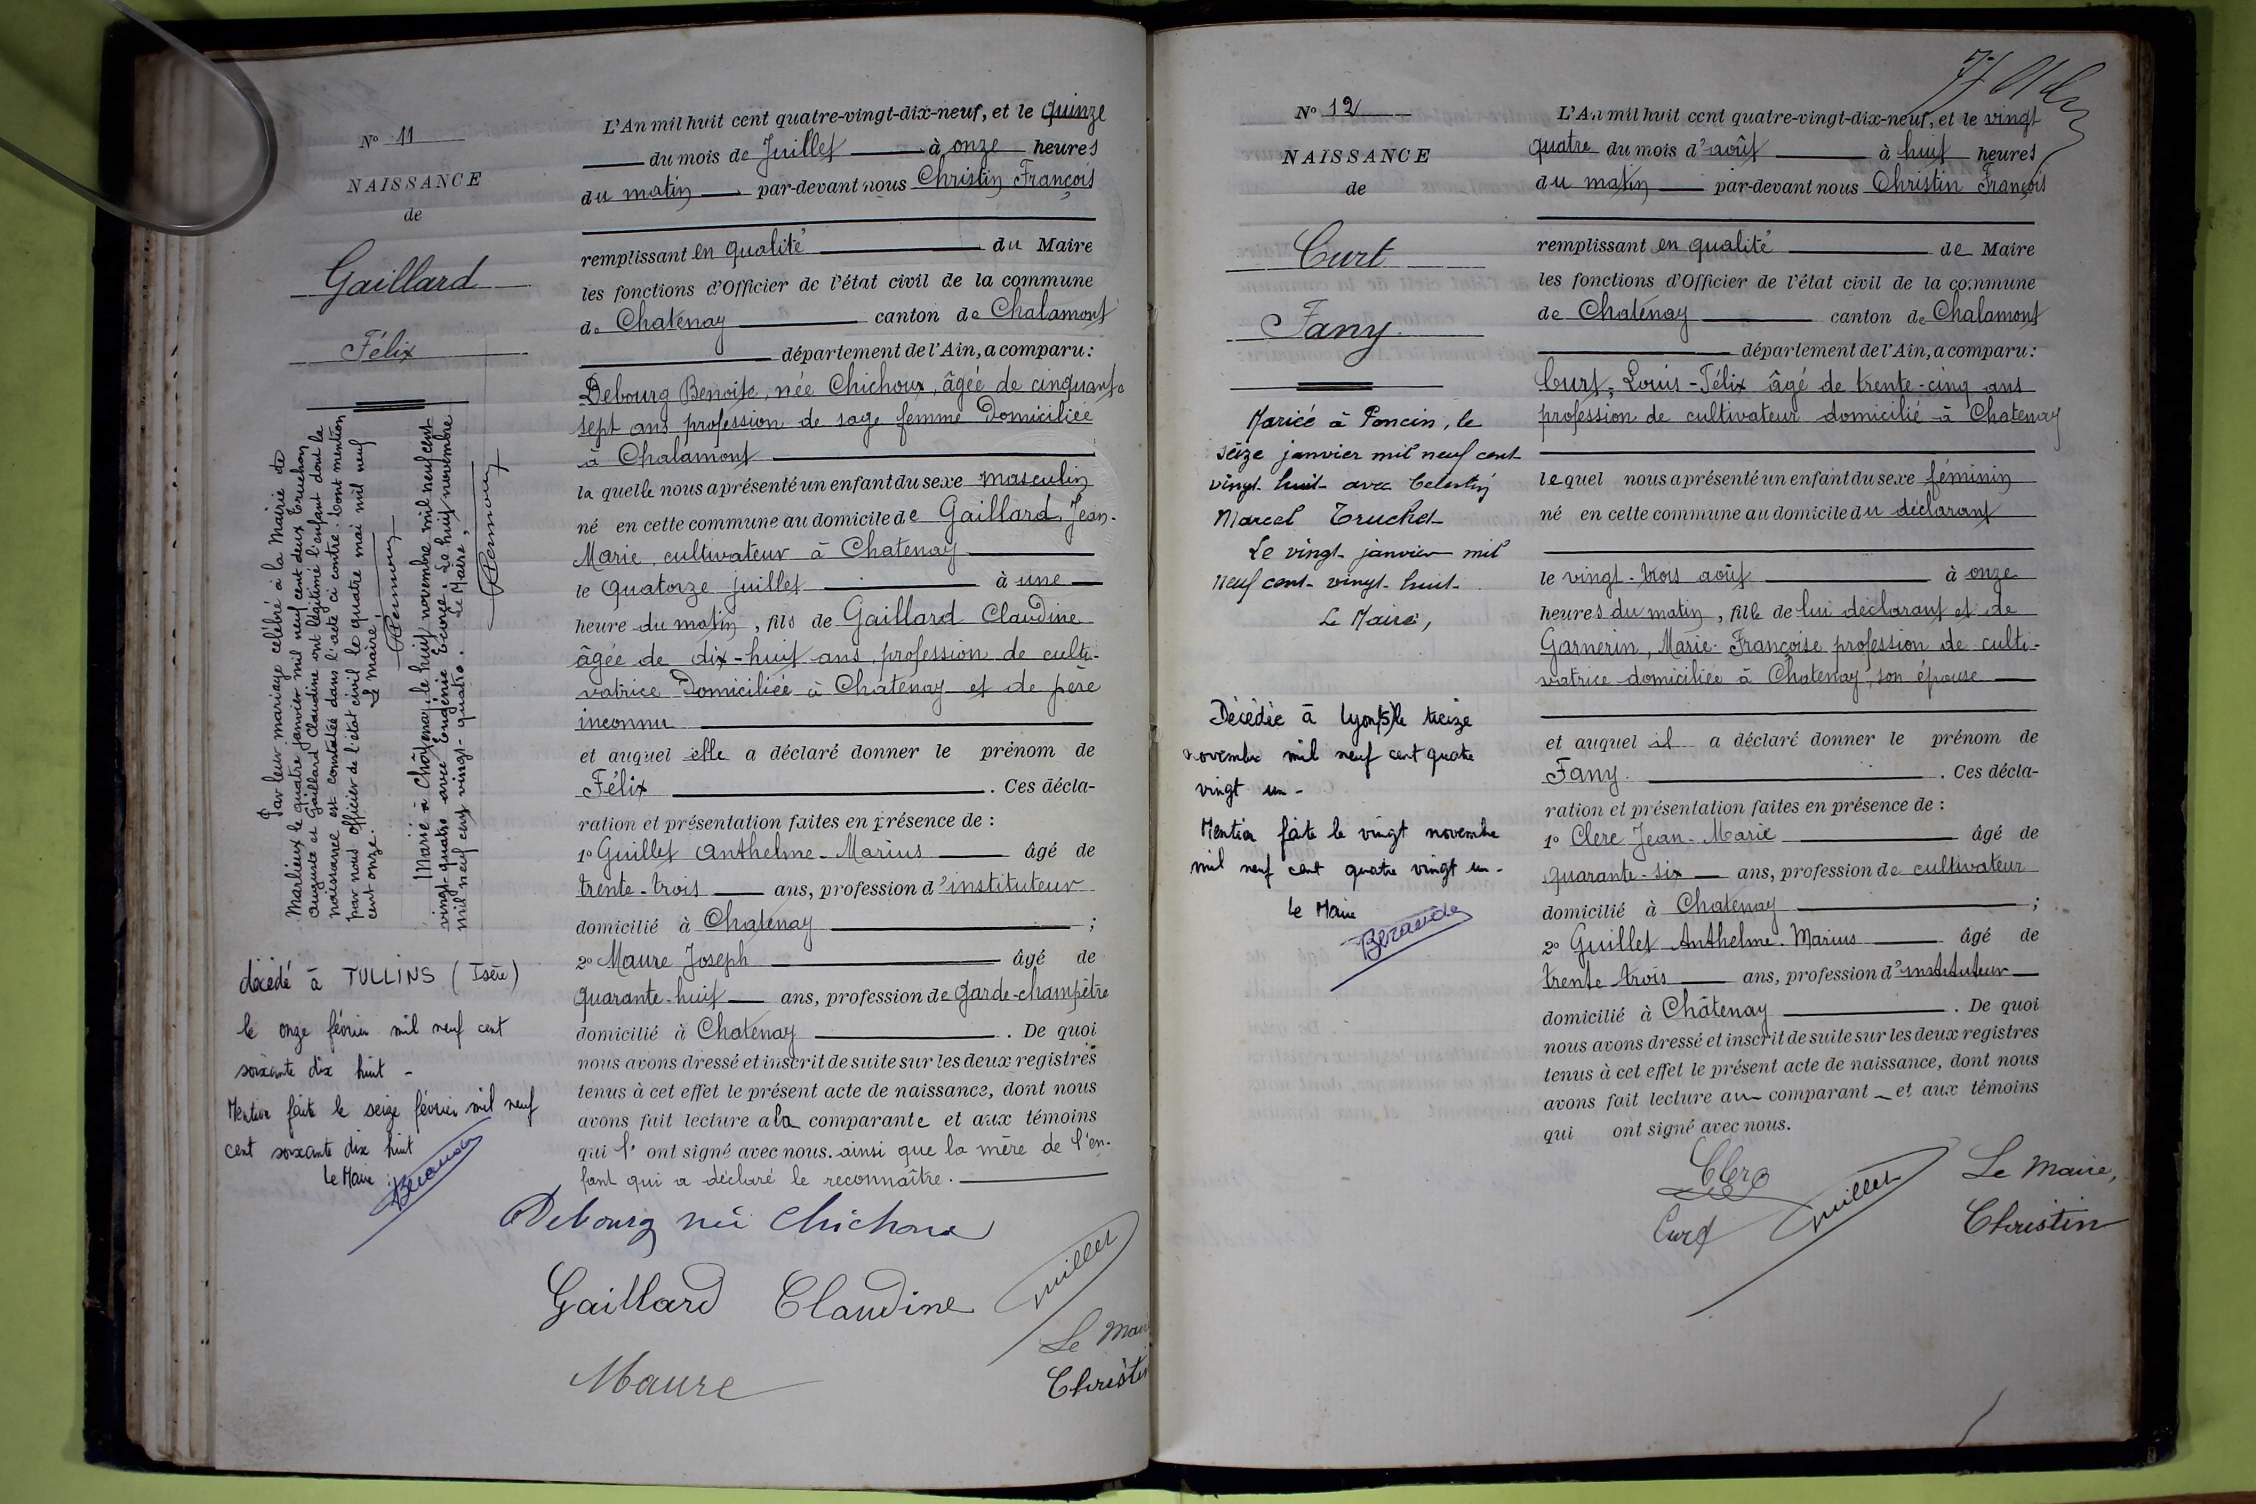 N° 11
NAISSANCE
de
Gaillard
Félix
Par leur mariage célébré à la Mairie de
Marlieux le quatre janvier mil neuf cent deux Truchon
Auguste et Gaillard Claudine ont légitimé l'enfant dont la
naissance est constatée dans l'acte ci contre. Dont mention
par nous officier de l'état civil le quatre mai mil neuf
cent onze.
Le Maire,
Marié à Châtenay, le huit novembre mil neuf cent
vingt-quatre avec Eugénie. Le huit novembre
mil neuf cent vingt-quatre.
Le Maire,
décédé à TULLINS (Isère)
le onze février mil neuf cent
soixante dix huit -
Mention faite le seize février mil neuf
cent soixante dix huit
Le Maire :
L'An mil huit cent quatre-vingt-dix-neuf, et le quinze
du mois de Juillet à onze heures
du matin par-devant nous Christin François
remplissant en qualité du Maire
les fonctions d'Officier de l'état civil de la commune
de Chatenay canton de Chalamont
département de l'Ain, a comparu :
Debourg Benoite, née Chichoux, âgée de cinquante
sept ans profession de sage femme domiciliée
à Chalamont
la quelle nous a présenté un enfant du sexe masculin
né en cette commune au domicile de Gaillard, Jean-
Marie, cultivateur à Chatenay
le quatorze juillet à une
heure du matin, fils de Gaillard Claudine
âgée de dix-huit ans, profession de culti-
vatrice domiciliée à Chatenay et de père
inconnu
et auquel elle a déclaré donner le prénom de
Félix . Ces décla-
ration et présentation faites en présence de :
1° Guillet Anthelme-Marius âgé de
trente-trois ans, profession d'instituteur
domicilié à Chatenay ;
2° Maure Joseph âgé de
quarante-huit ans, profession de garde-champêtre
domicilié à Chatenay . De quoi
nous avons dressé et inscrit de suite sur les deux registres
tenus à cet effet le présent acte de naissance, dont nous
avons fait lecture a la comparante et aux témoins
qui l' ont signé avec nous. ainsi que la mère de l'en-
fant qui a déclaré le reconnaître.
Debourg née Chichoux
Gaillard Claudine
Guillet
Maure
Le Maire
Christin
N° 12
NAISSANCE
de
Curt
Fany
Mariée à Poncin, le
seize janvier mil neuf cent
vingt-huit avec Celestin
Marcel Truchet
Le vingt janvier mil
neuf cent vingt-huit
Le Maire,
Décédée à Lyon(5) le treize
novembre mil neuf cent quatre
vingt un -
Mention faite le vingt novembre
mil neuf cent quatre vingt un -
Le Maire
L'An mil huit cent quatre-vingt-dix-neuf, et le vingt
quatre du mois d'août à huit heures
du matin par-devant nous Christin François
remplissant en qualité de Maire
les fonctions d'Officier de l'état civil de la commune
de Chatenay canton de Chalamont
département de l'Ain, a comparu :
Curt, Louis-Félix âgé de trente-cinq ans
profession de cultivateur domicilié à Chatenay
lequel nous a présenté un enfant du sexe féminin
né en cette commune au domicile du déclarant
le vingt-trois août à onze
heures du matin, fille de lui déclarant et de
Garnerin, Marie-Françoise profession de culti-
vatrice domiciliée à Chatenay, son épouse
et auquel il a déclaré donner le prénom de
Fany . Ces décla-
ration et présentation faites en présence de :
1° Clerc Jean-Marie âgé de
quarante-six ans, profession de cultivateur
domicilié à Chatenay ;
2° Guillet Anthelme-Marius âgé de
trente trois ans, profession d'instituteur
domicilié à Châtenay . De quoi
nous avons dressé et inscrit de suite sur les deux registres
tenus à cet effet le présent acte de naissance, dont nous
avons fait lecture au comparant et aux témoins
qui ont signé avec nous.
Clerc
Curt
Guillet
Le Maire,
Christin